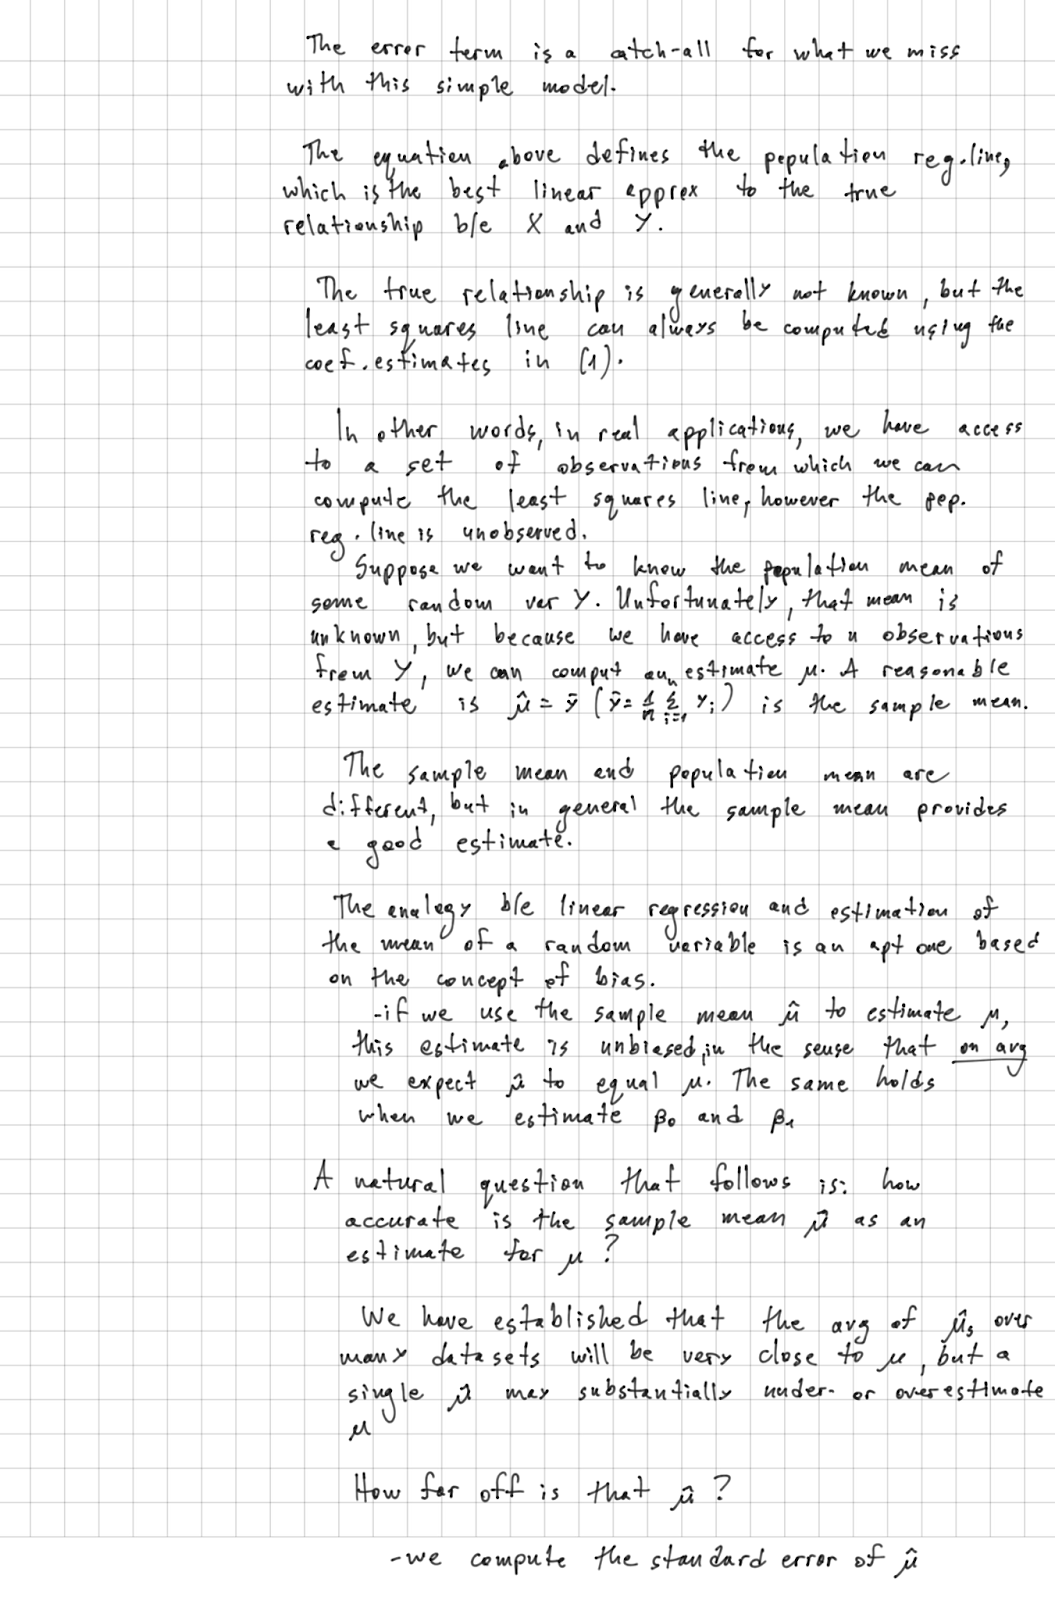 The error term is a catch-all for what we miss
with this simple model.
The equation above defines the population reg. line,
which is the best linear approx to the true
relationship b/e X and Y.
The true relationship is generally not known, but the
least squares line can always be computed using the
coef. estimates in (1).
In other words, in real applications, we have access
to a set of observations from which we can
compute the least squares line, however the pop.
reg. line is unobserved.
Suppose we want to know the population mean of
some random var Y. Unfortunately, that mean is
unknown, but because we have access to n observations
from Y, we can comput an estimate μ. A reasonable
estimate is μ̂ = ȳ (ȳ = 1/n Σ i=1 yi) is the sample mean.
The sample mean and population mean are
different, but in general the sample mean provides
a good estimate.
The analogy b/e linear regression and estimation of
the mean of a random variable is an apt one based
on the concept of bias.
-if we use the sample mean μ̂ to estimate μ,
this estimate is unbiased, in the sense that on avg
we expect μ̂ to equal μ. The same holds
when we estimate β₀ and β₁
A natural question that follows is: how
accurate is the sample mean μ̂ as an
estimate for μ?
We have established that the avg of μ̂s over
many datasets will be very close to μ, but a
single μ̂ may substantially under- or overestimate
μ
How far off is that μ̂?
-we compute the standard error of μ̂